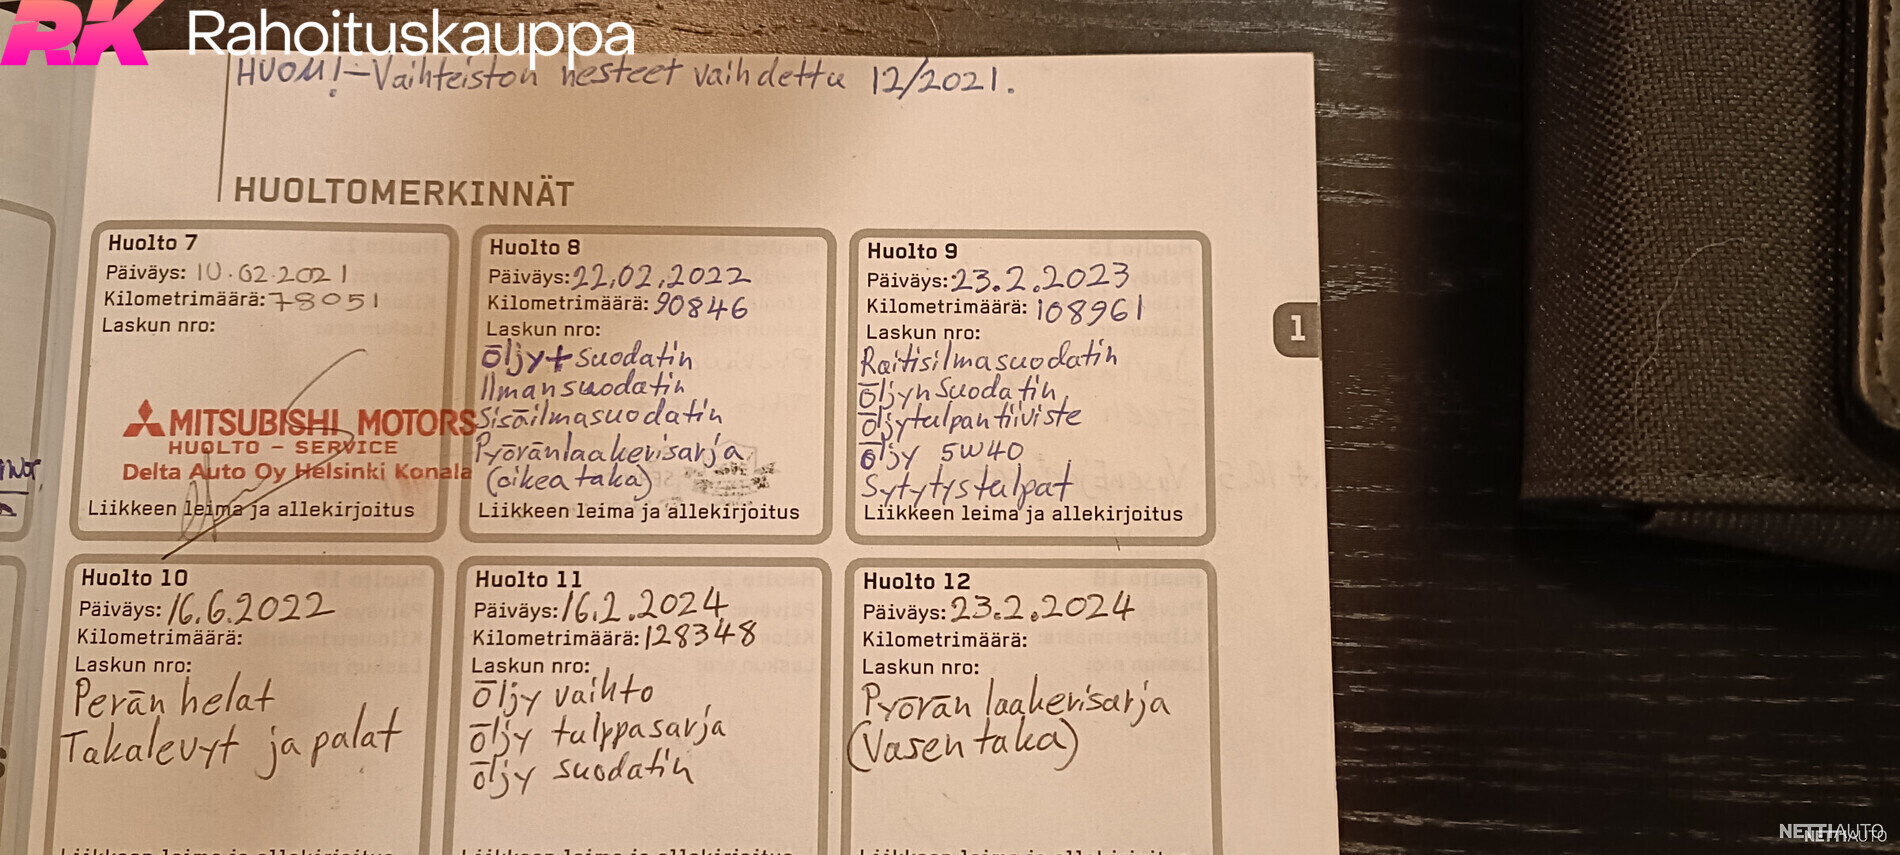 RK Rahoituskauppa
HUOM! - Vaihteiston nesteet vaihdettu 12/2021.
HUOLTOMERKINNÄT
Huolto 7
Päiväys: 10.02.2021
Kilometrimäärä: 78051
Laskun nro:
MITSUBISHI MOTORS
HUOLTO - SERVICE
Delta Auto Oy Helsinki Konala
Liikkeen leima ja allekirjoitus
Huolto 8
Päiväys: 22.02.2022
Kilometrimäärä: 90846
Laskun nro:
Öljy + suodatin
Ilmansuodatin
Sisäilmasuodatin
Pyöränlaakerisarja
(oikea taka)
Liikkeen leima ja allekirjoitus
Huolto 9
Päiväys: 23.2.2023
Kilometrimäärä: 108961
Laskun nro:
Raitisilmasuodatin
Öljynsuodatin
Öljytulpan tiiviste
Öljy 5W40
Sytytystulpat
Liikkeen leima ja allekirjoitus
1
Huolto 10
Päiväys: 16.6.2022
Kilometrimäärä:
Laskun nro:
Perän helat
Takalevyt ja palat
Huolto 11
Päiväys: 16.2.2024
Kilometrimäärä: 128348
Laskun nro:
Öljy vaihto
Öljy tulppasarja
Öljy suodatin
Huolto 12
Päiväys: 23.2.2024
Kilometrimäärä:
Laskun nro:
Pyörän laakerisarja
(Vasen taka)
Liikkeen leima ja allekirjoitus
Liikkeen leima ja allekirjoitus
Liikkeen leima ja allekirjoitus
NETTIAUTO
NETTIAUTO